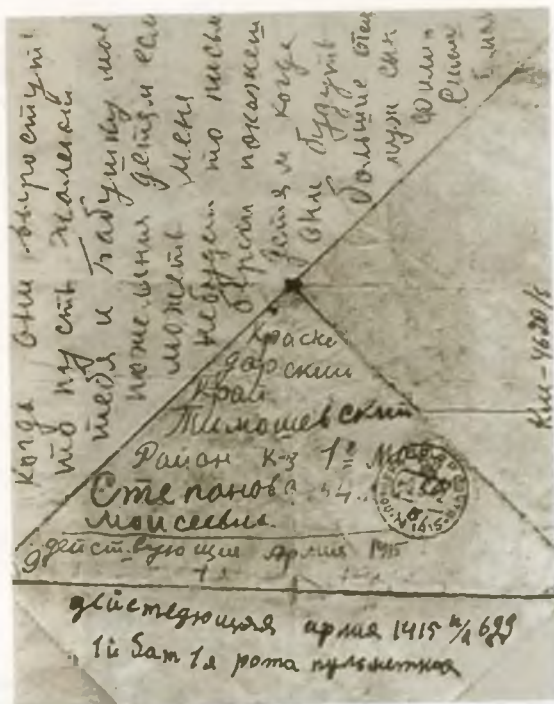 когда они выростут
то пусть жалеют
тебя и бабушку мое
пожелания детям если
может меня
небудет то письмо
береги покажеш
детям когда
они будуть
большие отец
муж сын
Краснo
дарский
край
Тимошевский
Район к-з 1е Мая
Степанова
Моисеевна.
действующия армия 1915
действующая армия 1415 п/п 689
1й Бат 1я рота пульметная
КМ-4620/8